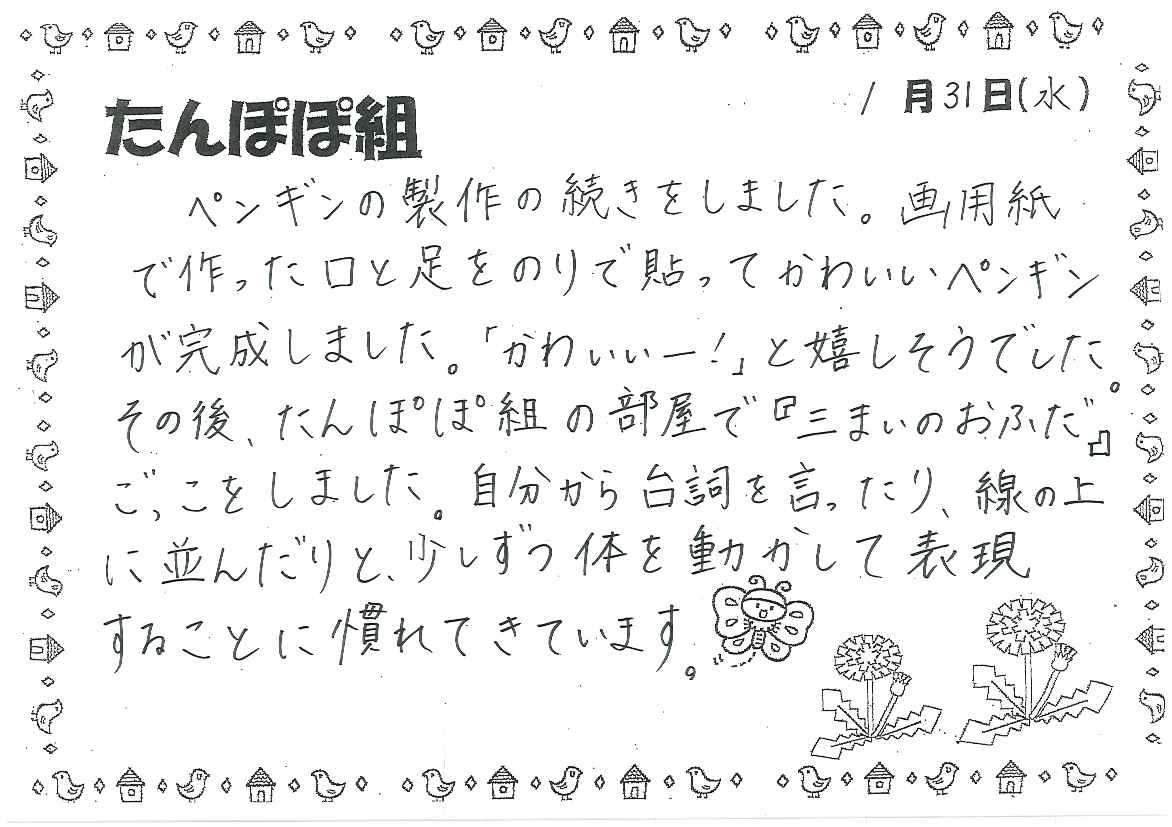 1月31日(水)
たんぽぽ組
ペンギンの製作の続きをしました。画用紙
で作った口と足をのりで貼ってかわいいペンギン
が完成しました。「かわいいー!」と嬉しそうでした。
その後、たんぽぽ組の部屋で『三まいのおふだ』
ごっこをしました。自分から台詞を言ったり、線の上
に並んだりと、少しずつ体を動かして表現
することに慣れてきています。